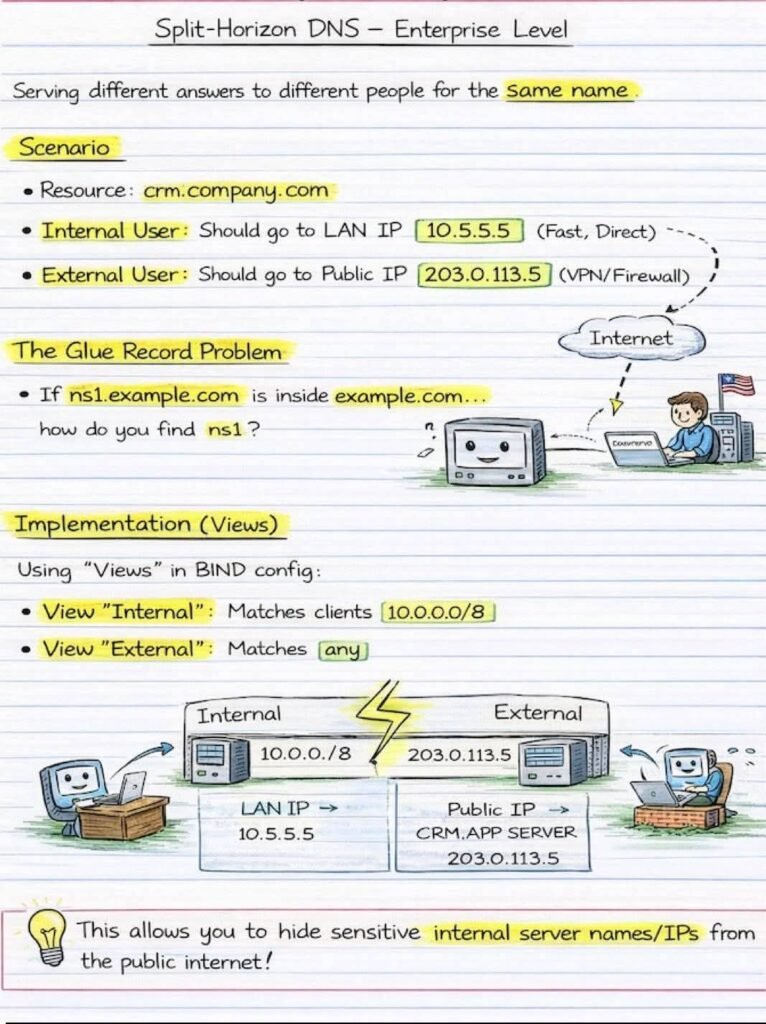 Split-Horizon DNS – Enterprise Level
Serving different answers to different people for the same name.
Scenario
• Resource: crm.company.com
• Internal User: Should go to LAN IP 10.5.5.5 (Fast, Direct)
• External User: Should go to Public IP 203.0.113.5 (VPN/Firewall)
Internet
The Glue Record Problem
• If ns1.example.com is inside example.com...
how do you find ns1?
Implementation (Views)
Using "Views" in BIND config:
• View "Internal": Matches clients 10.0.0.0/8
• View "External": Matches any
Internal External
10.0.0./8 203.0.113.5
LAN IP →
10.5.5.5
Public IP →
CRM.APP SERVER
203.0.113.5
This allows you to hide sensitive internal server names/IPs from
the public internet!